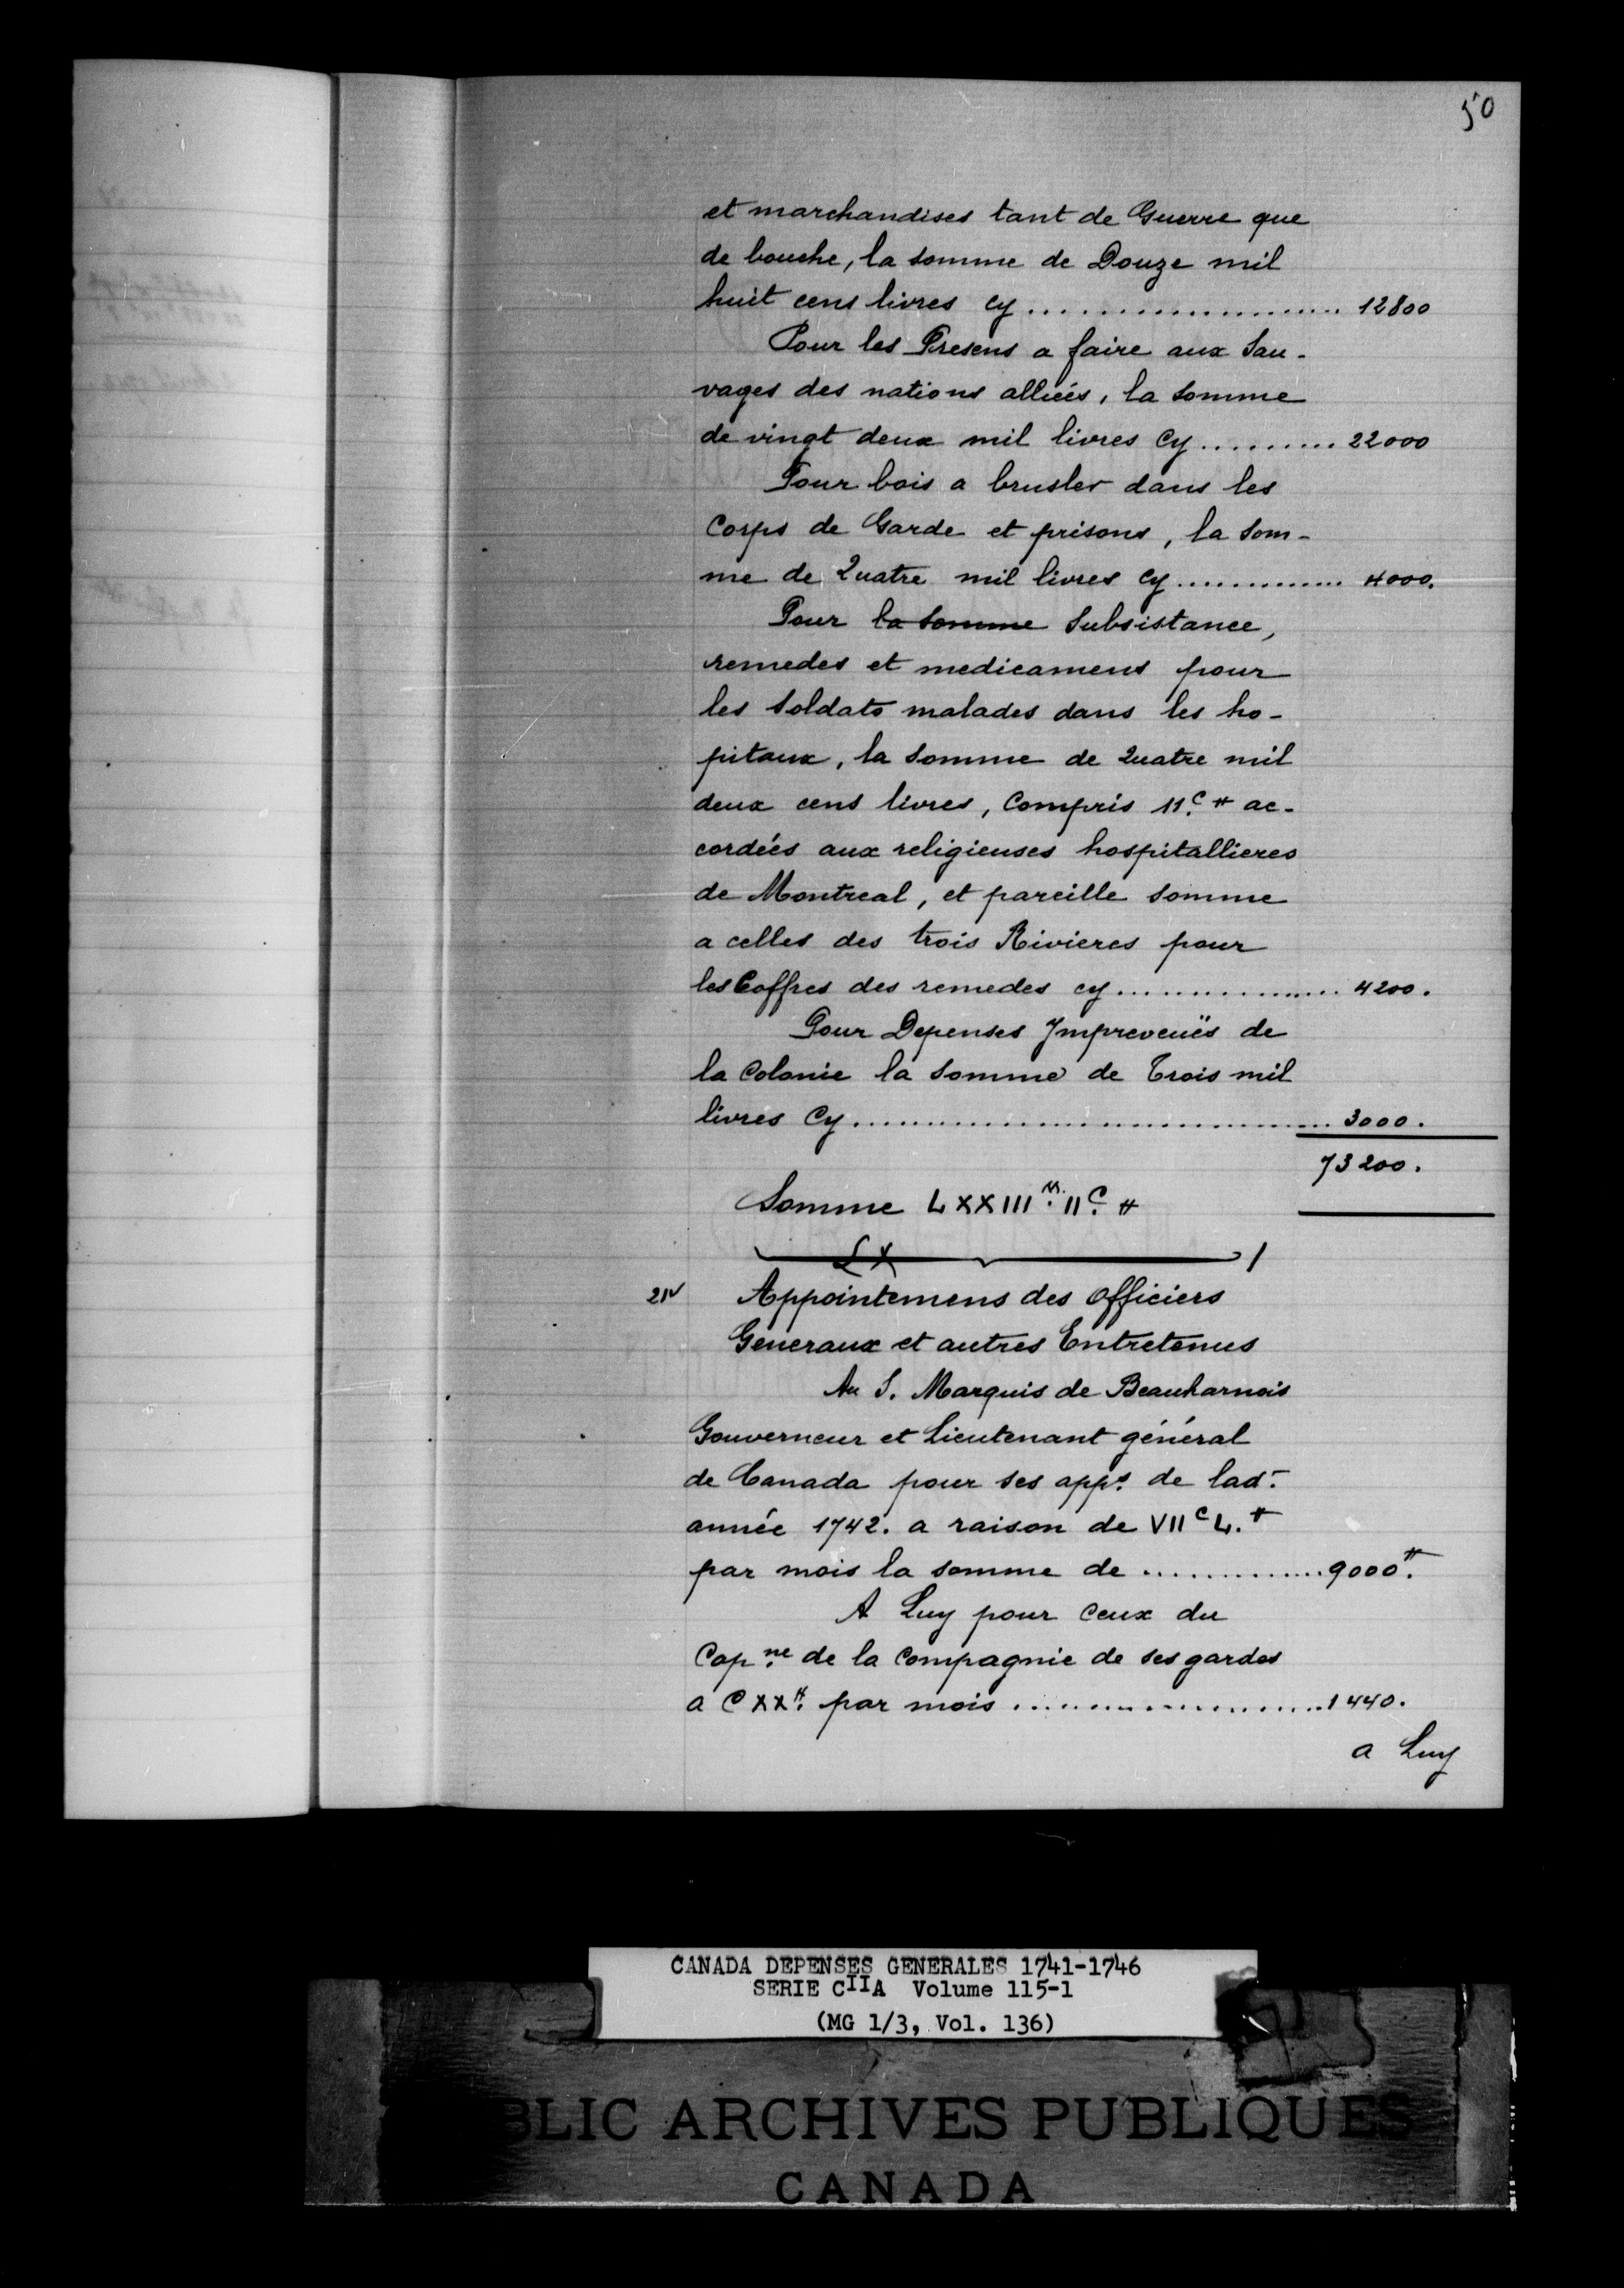 50
et marchandises tant de Guerre que
de bouche, la somme de Douze mil
huit cens livres cy .................... 12800
Pour les Presens a faire aux Sau-
vages des nations alliéés, la somme
de vingt deux mil livres Cy .......... 22000
Pour bois a brusler dans les
Corps de Garde et prisons, la Som-
me de Quatre mil livres cy .............. 4000.
Pour la somme Subsistance,
remedes et medicamens pour
les Soldats malades dans les ho-
pitaux, la Somme de Quatre mil
deux cens livres, Compris 11.C ₶ ac-
cordéés aux religieuses hospitallieres
de Montreal, et pareille Somme
a celles des trois Rivieres pour
les Coffres des remedes cy ................ 4200.
Pour Depenses Impreveuës de
la Colonie la Somme de Trois mil
livres Cy .............................. 3000.
73200.
Somme LXXIII.M IIC. ₶
21v Appointemens des officiers
Generaux et autres Entretenus
Au S. Marquis de Beauharnois
Gouverneur et Lieutenant général
de Canada pour ses app.s de lad.
année 1742. a raison de VIIC L.₶
par mois la somme de .............. 9000.₶
A Luy pour Ceux du
Cap.ne de la Compagnie de ses gardes
a CXX.₶ par mois .................... 1440.
a Luy
CANADA DEPENSES GENERALES 1741-1746
SERIE CIIA Volume 115-1
(MG 1/3, Vol. 136)
BLIC ARCHIVES PUBLIQUES
CANADA